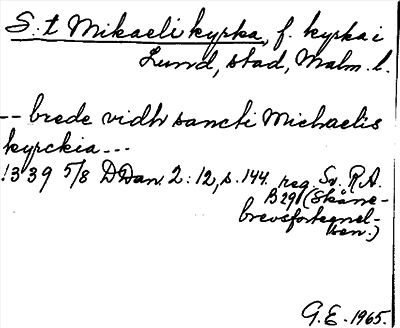 S:t Mikaeli kyrka, f. kyrka i
Lund, stad, Malm. l.
-- brede vidh sancti Michaelis
kyrckia ---
1339 5/8 DDan. 2:12, s. 144. reg. Sv. R.A.
B 29 (Skåne-
brevsfortegnel-
sen.)
G.E. 1965.